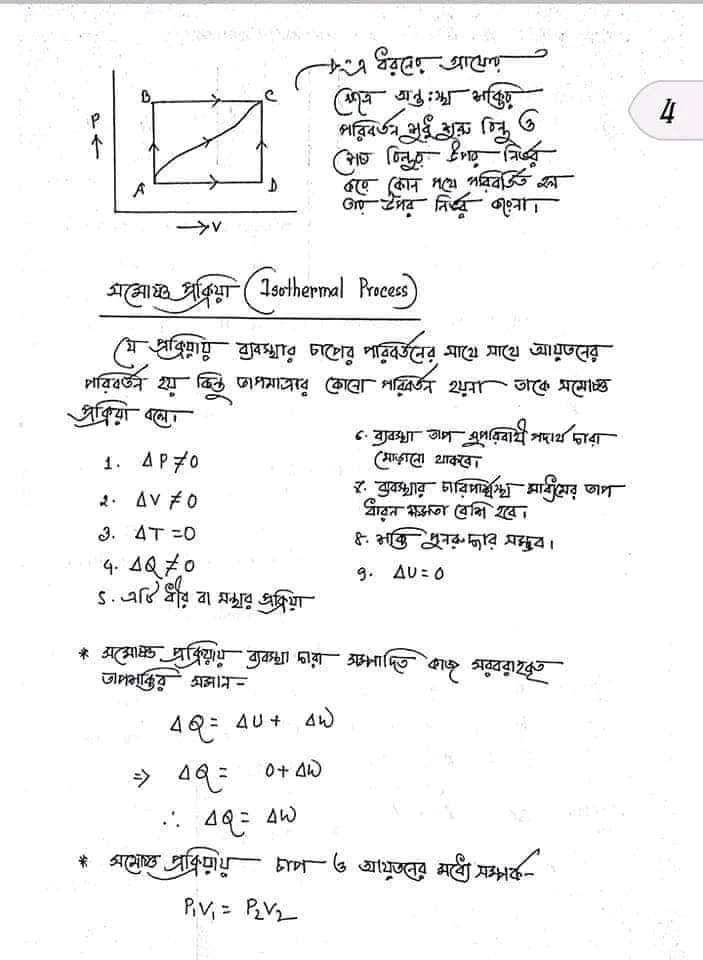 এ ধরনের গ্রাফের
ক্ষেত্রে অন্তঃস্থ শক্তির
পরিবর্তন শুধু শুরু বিন্দু ও
শেষ বিন্দুর উপর নির্ভর
করে কোন পথে পরিবর্তিত হল
তার উপর নির্ভর করেনা।
4
B C
P
A D
V
সমোষ্ণ প্রক্রিয়া (Isothermal Process)
যে প্রক্রিয়ায় ব্যবস্থার চাপের পরিবর্তনের সাথে সাথে আয়তনের
পরিবর্তন হয় কিন্তু তাপমাত্রার কোনো পরিবর্তন হয়না তাকে সমোষ্ণ
প্রক্রিয়া বলে।
1. ΔP ≠ 0
২. ΔV ≠ 0
৩. ΔT = 0
৪. ΔQ ≠ 0
৫. এটি ধীর বা মন্থর প্রক্রিয়া
৬. ব্যবস্থা তাপ সুপরিবাহী পদার্থ দ্বারা
মোড়ানো থাকবে।
৭. ব্যবস্থার চারিপার্শ্বস্থ মাধ্যমের তাপ
ধারন ক্ষমতা বেশি হবে।
৮. শক্তি পুনরুদ্ধার সম্ভব।
৯. ΔU = 0
* সমোষ্ণ প্রক্রিয়ায় ব্যবস্থা দ্বারা সম্পাদিত কাজ সরবরাহকৃত
তাপশক্তির সমান-
ΔQ = ΔU + ΔW
⇒ ΔQ = 0 + ΔW
∴ ΔQ = ΔW
* সমোষ্ণ প্রক্রিয়ায় চাপ ও আয়তনের মধ্যে সম্পর্ক-
P₁V₁ = P₂V₂